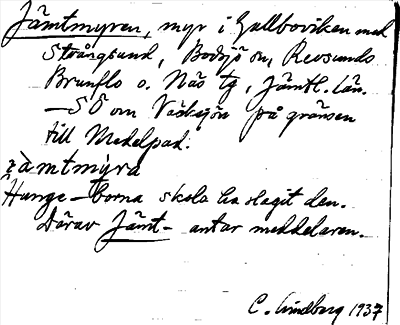 Jämtmyren, myr i Gallboviken med
Strångsund, Bodsjö sn, Revsunds
Brunflo o. Näs tg, Jämtl. län.
—SÖ om Väcksjön på gränsen
till Medelpad.
jàmtmỳra
Hunge-borna skola ha slagit den.
Därav Jämt- antar meddelaren.
C. Lindberg 1937